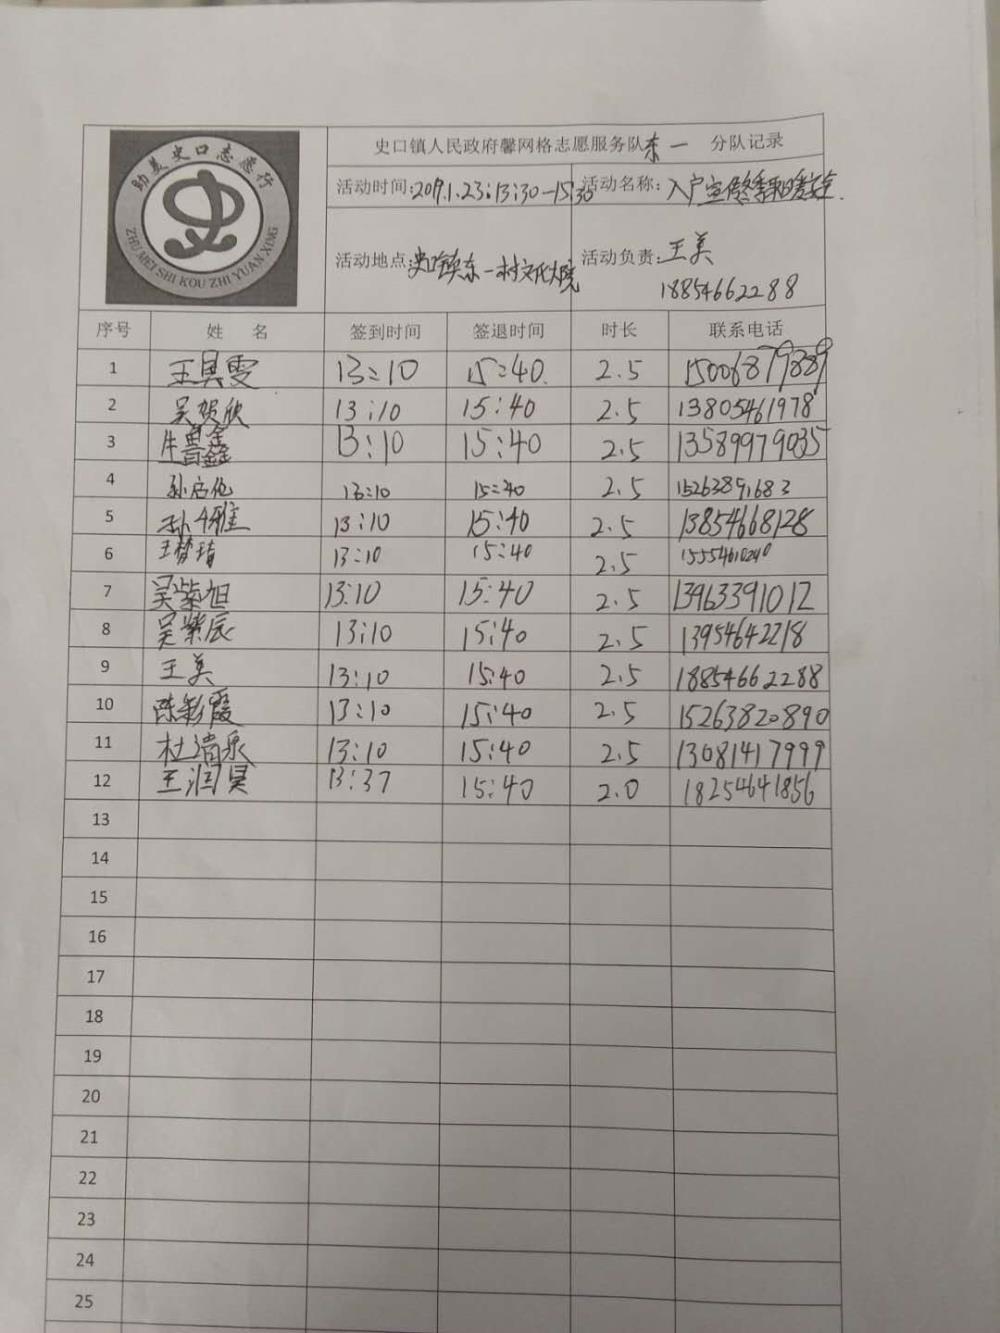 助美史口志愿行
ZHU MEI SHI KOU ZHI YUAN XING
史口镇人民政府馨网格志愿服务队东一 分队记录
活动时间:2019.1.23:13:30-15:30 活动名称: 入户宣传冬季取暖安全.
活动地点:史口镇东一村文化大院 活动负责:王美
18854662288
序号 姓 名 签到时间 签退时间 时长 联系电话
1 王昊雯 13:10 15:40 2.5 15006879889
2 吴贺欣 13:10 15:40 2.5 13805461978
3 13:10 15:40 2.5 13589979035
4 13:10 15:40 2.5 15263891683
5 13:10 15:40 2.5 13854668128
6 王梦 13:10 15:40 2.5 15554610240
7 吴紫旭 13:10 15:40 2.5 13963391012
8 吴紫辰 13:10 15:40 2.5 13954642218
9 王美 13:10 15:40 2.5 18854662288
10 陈彩霞 13:10 15:40 2.5 15263820890
11 杜清泉 13:10 15:40 2.5 13081417999
12 王润昊 13:37 15:40 2.0 18254641856
13
14
15
16
17
18
19
20
21
22
23
24
25